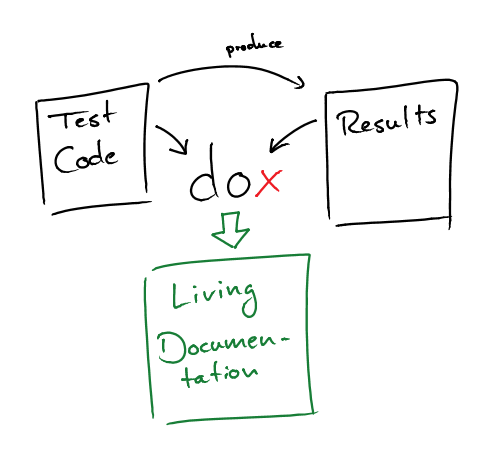 produce
Test
Code
Results
dox
Living
Documen-
tation